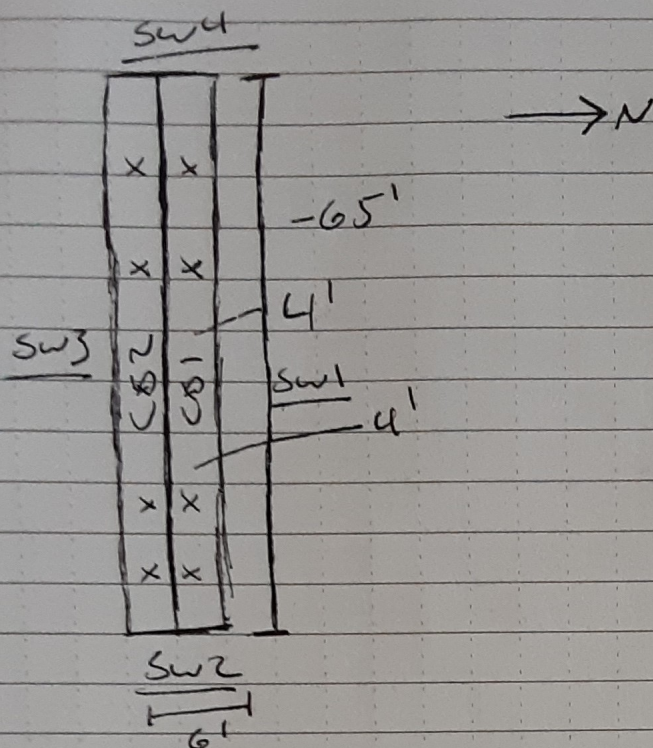 SW4
N
X X
-65'
X X
4'
SW3
CB2
CB1
SW1
4'
X X
X X
SW2
6'